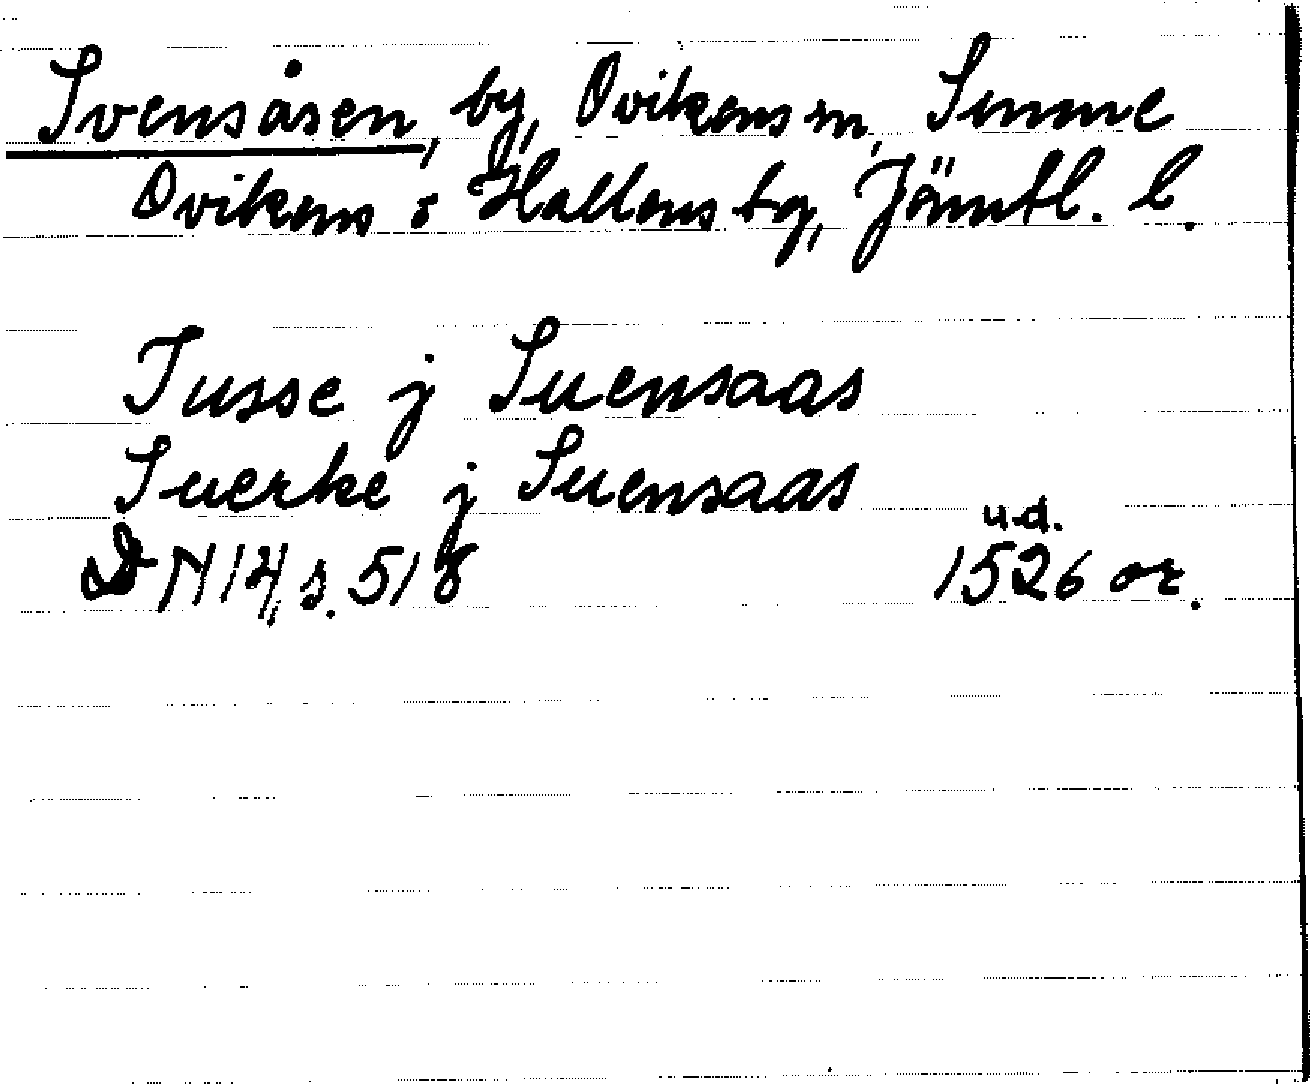 Svensåsen, by, Ovikens sn, Sunne
Ovikens o Hallens tg, Jämtl. l.
Tusse j Suensaas
Suerke j Suensaas
u.d.
DN 14, s. 518 1526 or.